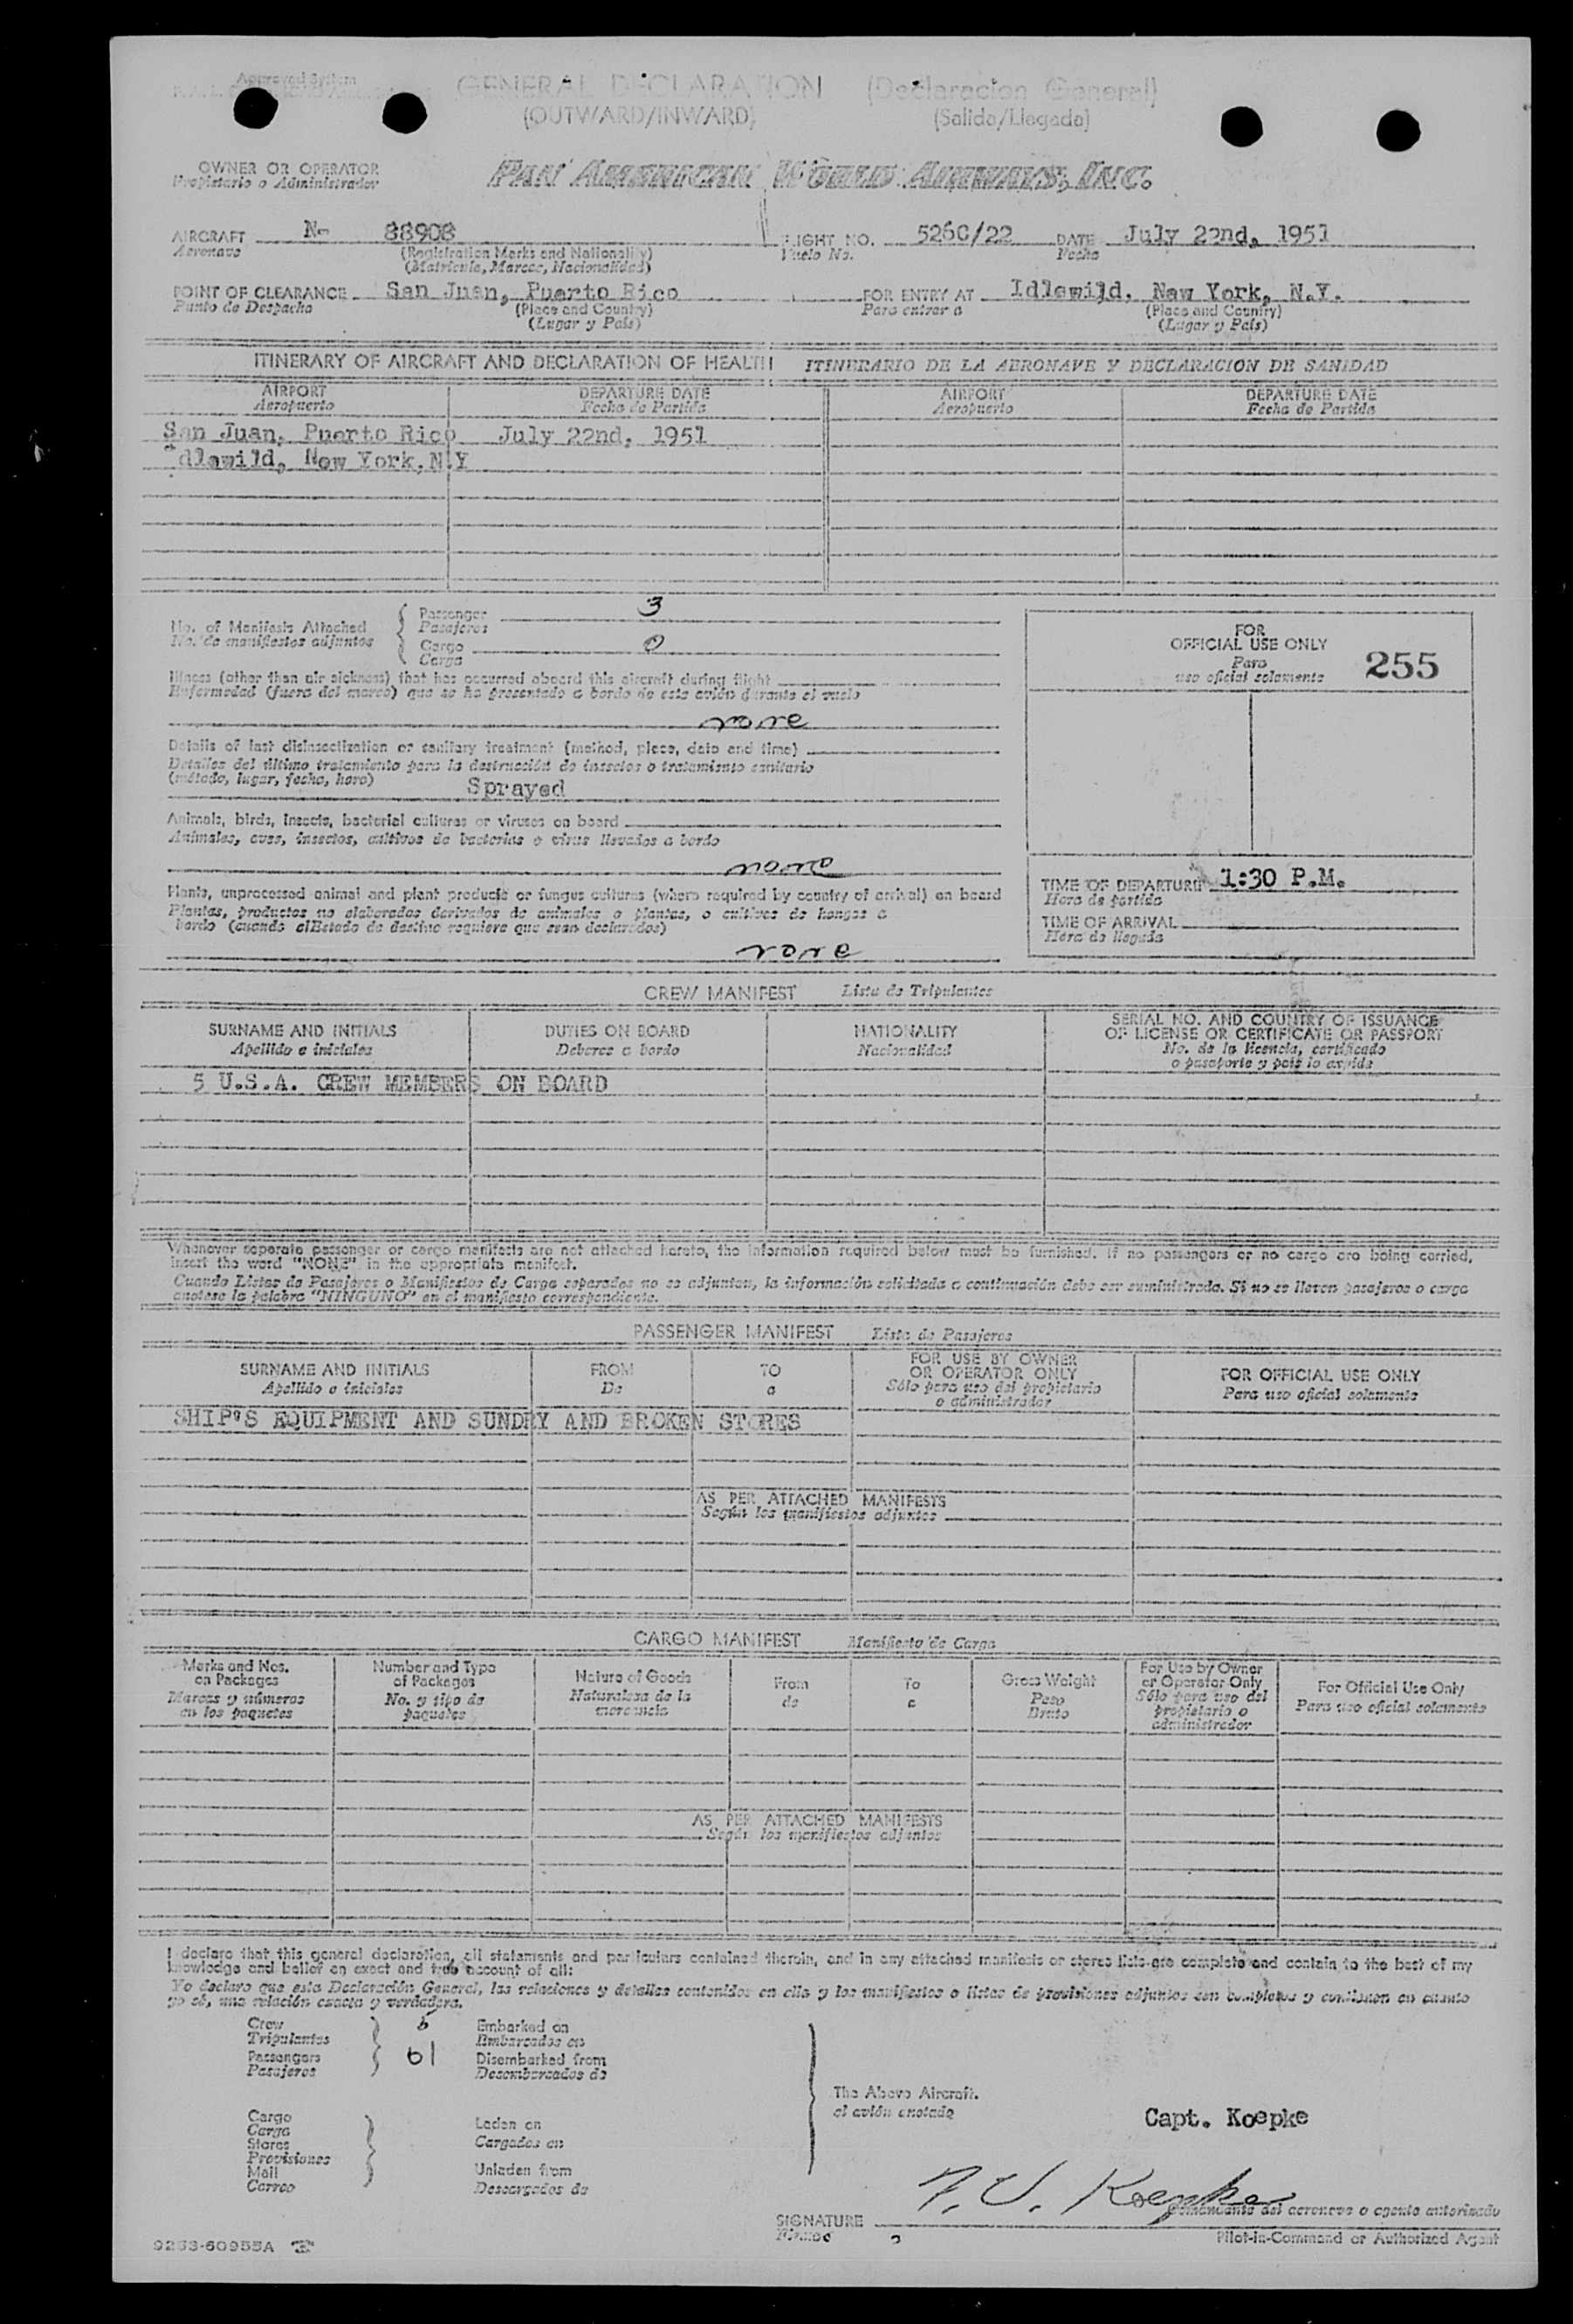 Approved System
GENERAL DECLARATION (Declaracion General)
(OUTWARD/INWARD) (Salida/Llegada)
OWNER OR OPERATOR
Propietario o Administrador
PAN AMERICAN WORLD AIRWAYS, INC.
AIRCRAFT N- 88908 FLIGHT NO. 526C/22 DATE July 22nd, 1951
Aeronave (Registration Marks and Nationality) Vuelo No. Fecha
(Matricula, Marcas, Nacionalidad)
POINT OF CLEARANCE San Juan, Puerto Rico FOR ENTRY AT Idlewild, New York, N.Y.
Punto de Despacho (Place and Country) Para entrar a (Place and Country)
(Lugar y País) (Lugar y País)
ITINERARY OF AIRCRAFT AND DECLARATION OF HEALTH ITINERARIO DE LA AERONAVE Y DECLARACION DE SANIDAD
AIRPORT DEPARTURE DATE AIRPORT DEPARTURE DATE
Aeropuerto Fecha de Partida Aeropuerto Fecha de Partida
San Juan, Puerto Rico July 22nd, 1951
Idlewild, New York, N.Y
No. of Manifests Attached
No. de manifiestos adjuntos
Passenger 3
Pasajeros
Cargo 0
Carga
Illness (other than air sickness) that has occurred aboard this aircraft during flight
Enfermedad (fuera del mareo) que se ha presentado a bordo de este avión durante el vuelo
none
Details of last disinsectization or sanitary treatment (method, place, date and time)
Detalles del último tratamiento para la destrucción de insectos o tratamiento sanitario
(método, lugar, fecha, hora) Sprayed
Animals, birds, insects, bacterial cultures or viruses on board
Animales, aves, insectos, cultivos de bacterias o virus llevados a bordo
none
Plants, unprocessed animal and plant products or fungus cultures (where required by country of arrival) on board
Plantas, productos no elaborados derivados de animales o plantas, o cultivos de hongos a
bordo (cuando el Estado de destino requiera que sean declarados)
none
FOR
OFFICIAL USE ONLY
Para
uso oficial solamente
255
TIME OF DEPARTURE 1:30 P.M.
Hora de partida
TIME OF ARRIVAL
Hora de llegada
CREW MANIFEST Lista de Tripulantes
SURNAME AND INITIALS DUTIES ON BOARD NATIONALITY SERIAL NO. AND COUNTRY OF ISSUANCE
OF LICENSE OR CERTIFICATE OR PASSPORT
Apellido e iniciales Deberes a bordo Nacionalidad No. de la licencia, certificado
o pasaporte y país lo expide
5 U.S.A. CREW MEMBERS ON BOARD
Whenever separate passenger or cargo manifests are not attached hereto, the information required below must be furnished. If no passengers or no cargo are being carried,
insert the word "NONE" in the appropriate manifest.
Cuando Listas de Pasajeros o Manifiestos de Carga separados no se adjunten, la información solicitada a continuación debe ser suministrada. Si no se llevan pasajeros o carga
anótese la palabra "NINGUNO" en el manifiesto correspondiente.
PASSENGER MANIFEST Lista de Pasajeros
SURNAME AND INITIALS FROM TO FOR USE BY OWNER
OR OPERATOR ONLY FOR OFFICIAL USE ONLY
Apellido e iniciales De a Sólo para uso del propietario
o administrador Para uso oficial solamente
SHIP'S EQUIPMENT AND SUNDRY AND BROKEN STORES
AS PER ATTACHED MANIFESTS
Según los manifiestos adjuntos
CARGO MANIFEST Manifiesto de Carga
Marks and Nos.
on Packages
Marcas y números
en los paquetes
Number and Type
of Packages
No. y tipo de
paquetes
Nature of Goods
Naturaleza de la
mercancía
From
de
To
a
Gross Weight
Peso
Bruto
For Use by Owner
or Operator Only
Sólo para uso del
propietario o
administrador
For Official Use Only
Para uso oficial solamente
AS PER ATTACHED MANIFESTS
Según los manifiestos adjuntos
I declare that this general declaration, all statements and particulars contained therein, and in any attached manifests or stores lists are complete and contain to the best of my
knowledge and belief an exact and true account of all:
Yo declaro que esta Declaración General, las relaciones y detalles contenidos en ella y los manifiestos o listas de provisiones adjuntos son completos y contienen en cuanto
yo sé, una relación exacta y verdadera.
Crew 5 Embarked on
Tripulantes Embarcados en
Passengers 61 Disembarked from
Pasajeros Desembarcados de
The Above Aircraft.
el avión anotado
Cargo Laden on
Carga
Stores Cargados en
Provisiones
Mail Unladen from
Correo Descargados de
Capt. Koepke
Koepke
SIGNATURE Comandante del aeronave o agente autorizado
Firma Pilot-in-Command or Authorized Agent
9253-60955A